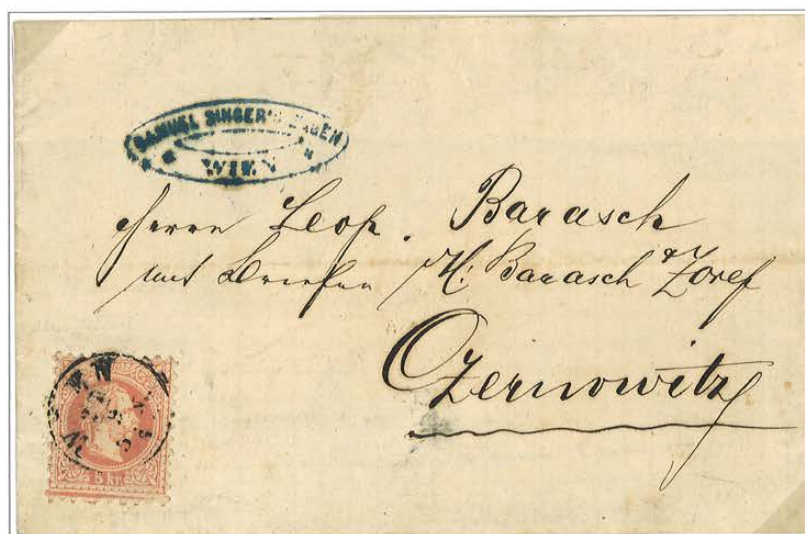 SAMUEL SINGER'S
WIEN
Herrn Leop. Barasch
mit Briefen M: Barasch & Zoref
Czernowitz
WIEN
5 Kr.